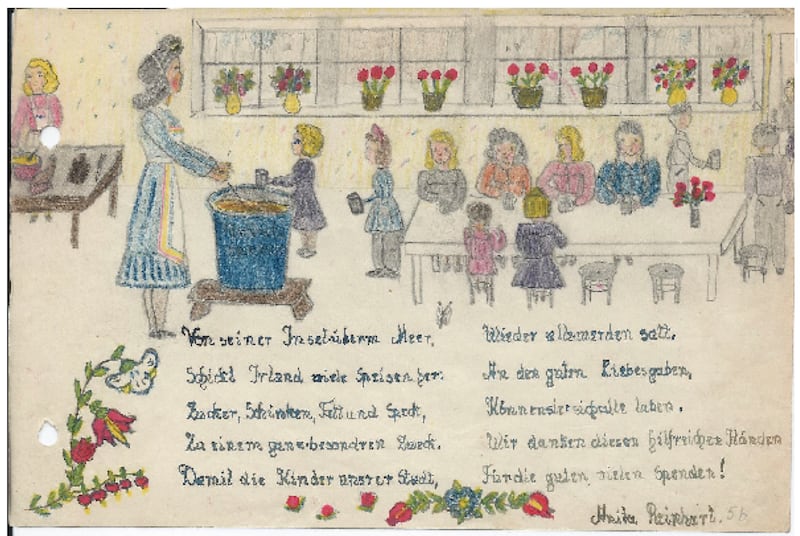 Von seiner Insel überm Meer,
Schickt Irland viele Speisen her:
Zucker, Schinken, Fett und Speck,
Zu einem ganz besondren Zweck.
Damit die Kinder unsrer Stadt,
Wieder alle werden satt.
An den guten Liebesgaben,
Können sie sich alle laben.
Wir danken diesen hilfreichen Händen
Für die guten, vielen Spenden!
Anita Reinhart. 5b